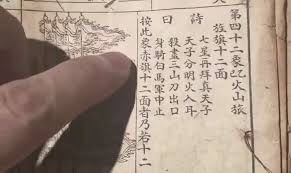 第四十二象乙巳火山旅
旌旗十二面
詩
七星再拜真天子
天子分明火入耳
殺盡三山刀出口
身騎白馬軍中止
曰
按此象赤旗十二面者乃若十二